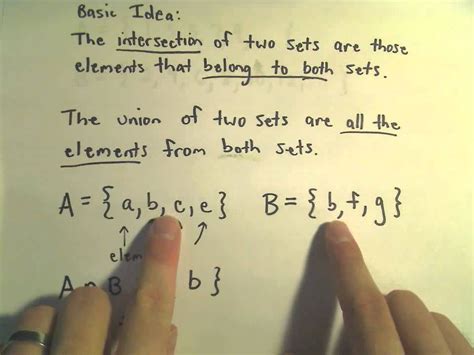 Basic Idea:
The intersection of two sets are those
elements that belong to both sets.
The union of two sets are all the
elements from both sets.
A = { a, b, c, e }    B = { b, f, g }
↑ ↑ ↑
b }